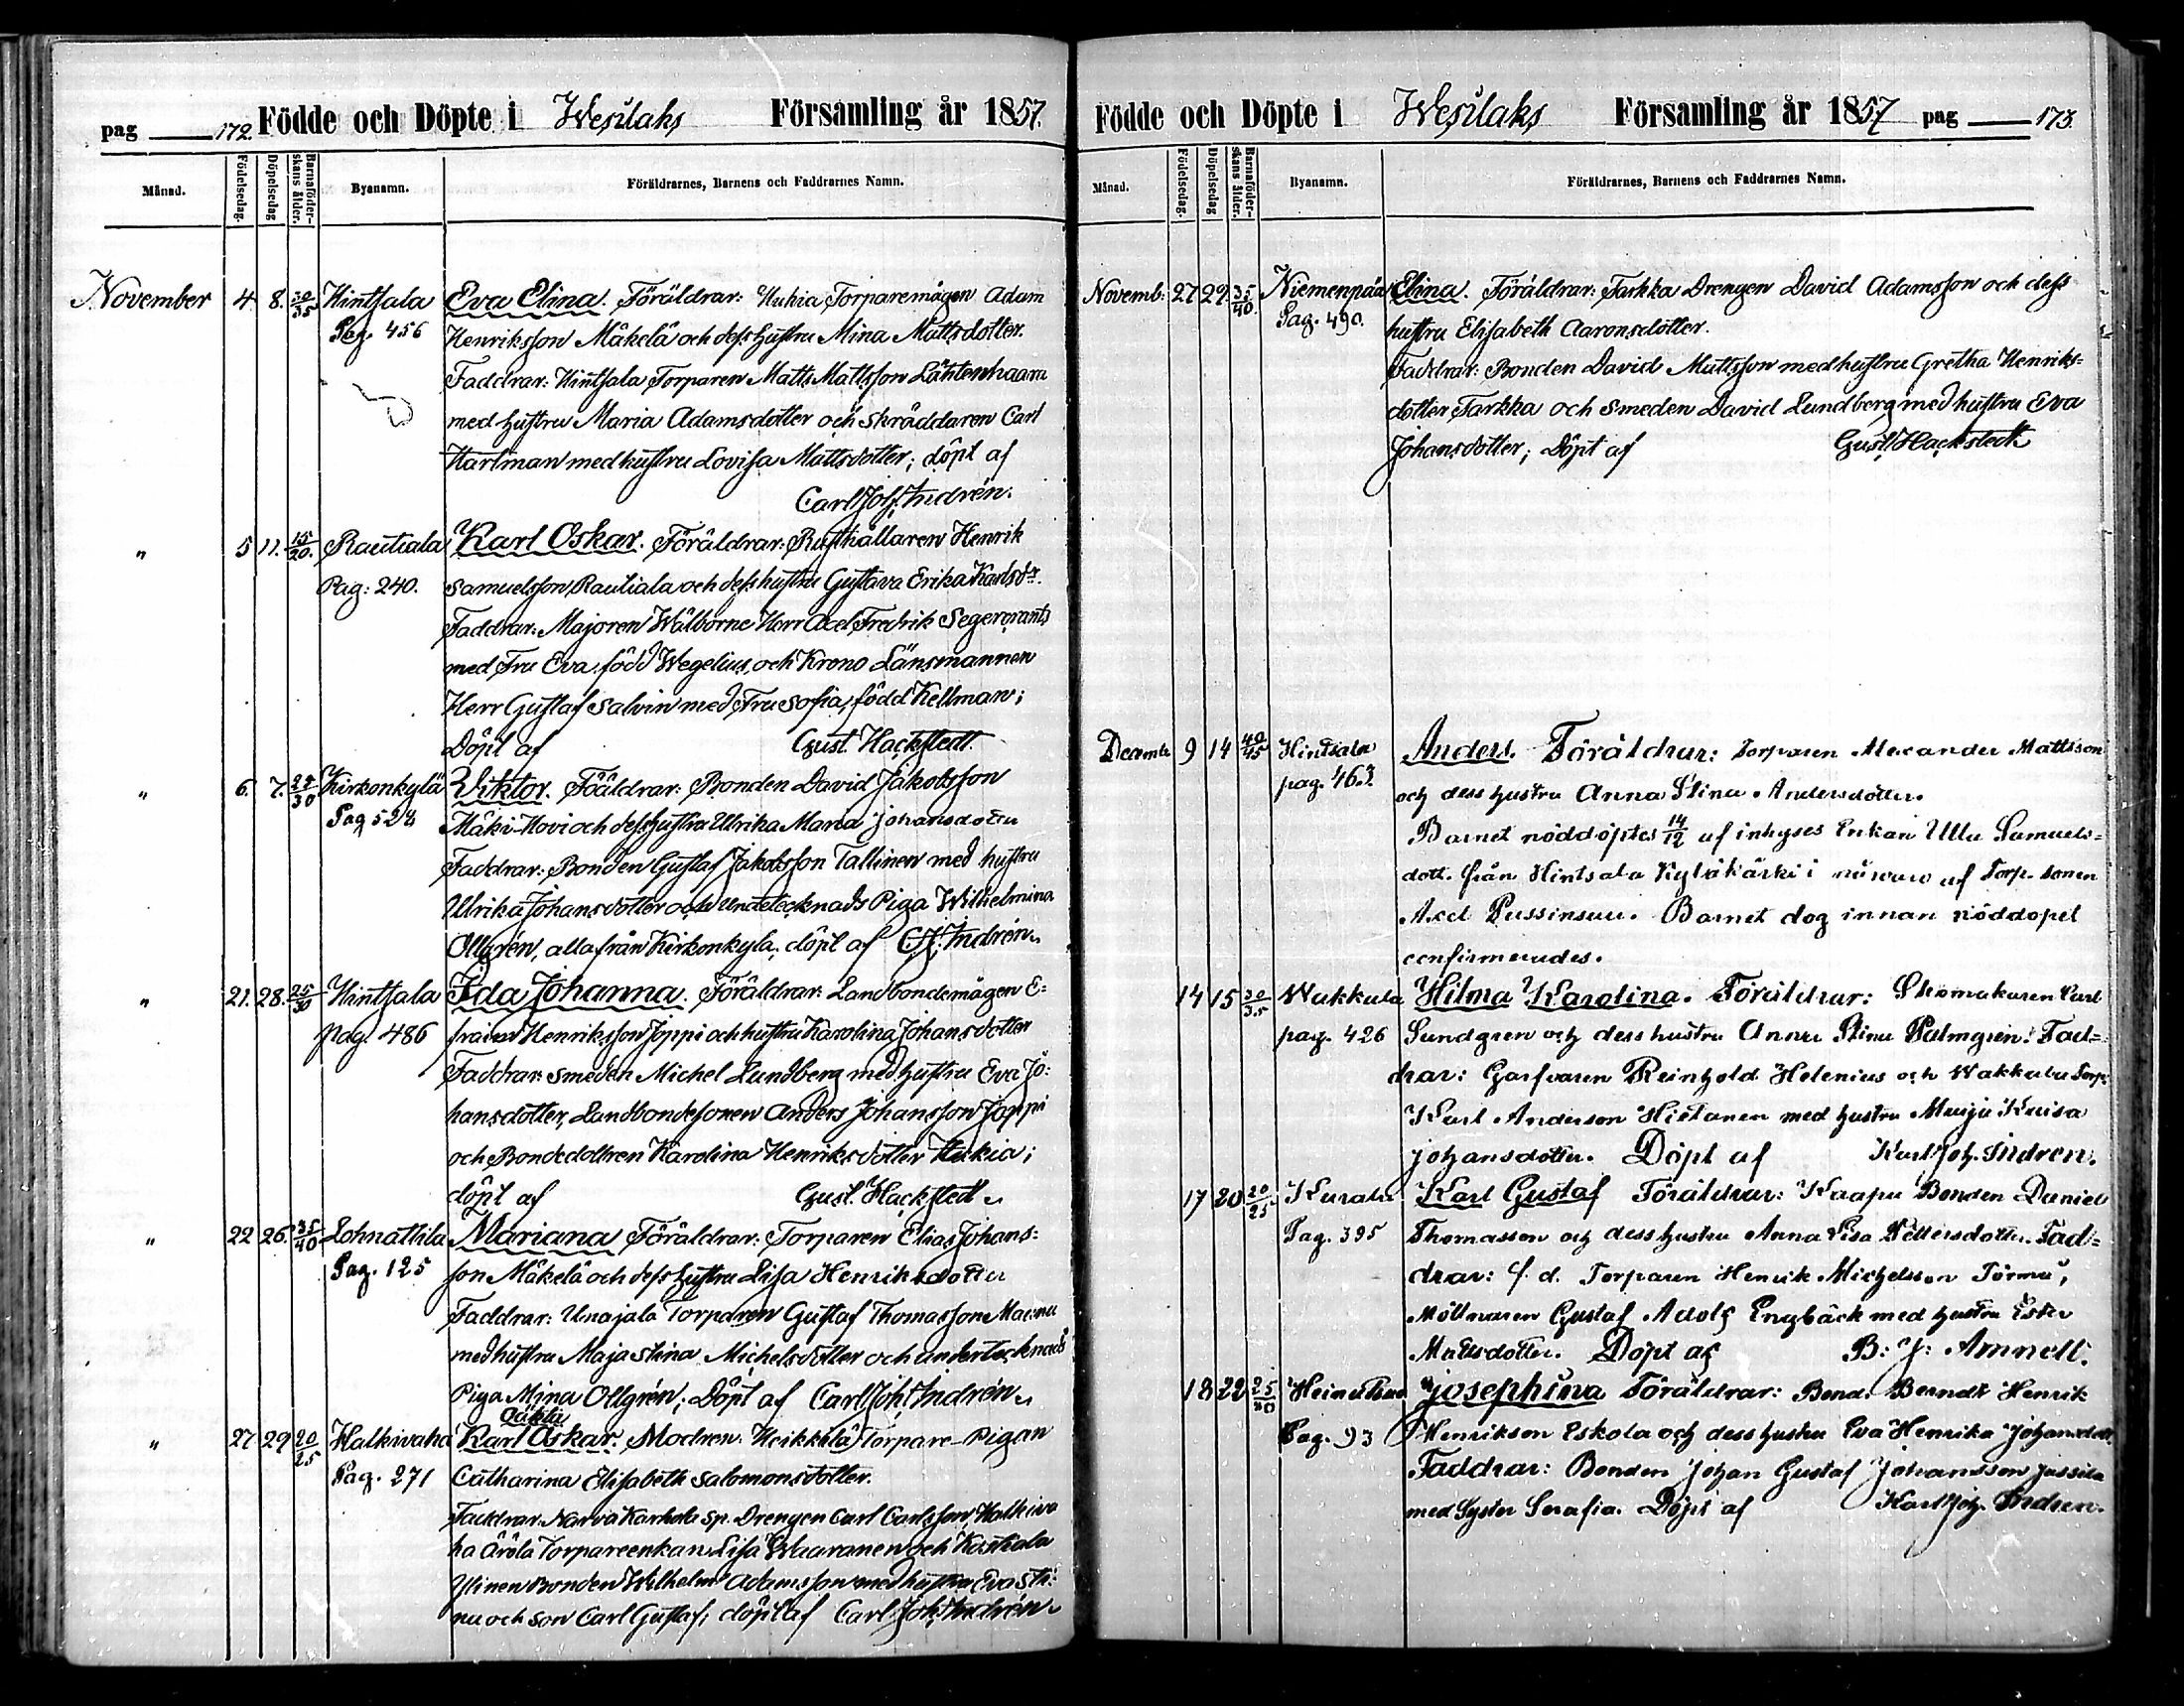 pag 172. Födde och Döpte i Wesilahs Församling år 1857.
Månad. Födelsedag. Döpelsedag Barnaföder-skans ålder. Byanamn. Föräldrarnes, Barnens och Faddrarnes Namn.
November 4 8. 30/35 Hintsala Eva Elina. Föräldrar: Huhia Torparemågen Adam
Pag. 456 Henriksson Mäkelä och dess hustru Mina Mattsdotter.
Faddrar: Hintsala Torparen Matts Mattsson Lähtenhaara
med hustru Maria Adamsdotter och Skräddaren Carl
Hartman med hustru Lovisa Mattsdotter; döpt af
Carl Joh. Indrén.
" 5 11. 15/20. Rautiala Karl Oskar. Föräldrar: Rusthållaren Henrik
Pag: 240. Samuelsson Rautiala och dess hustru Gustava Erika Karlsdr.
Faddrar: Majoren Wälborne Herr Axel Fredrik Segercrants
med Fru Eva, född Wegelius, och Krono Länsmannen
Herr Gustaf Salvin med Fru Sofia, född Kellman;
Döpt af Gust. Hackstedt.
" 6. 7. 25/30 Kirkonkylä Viktor. Föäldrar: Bonden David Jakobsson
Pag 528 Mäki-Hovi och dess hustru Ulrika Maria Johansdotter
Faddrar: Bonden Gustaf Jakobsson Tallinen med hustru
Ulrika Johansdotter och undetecknads Piga Wilhelmina
Ollgrén, alla från Kirkonkyla; döpt af C. J. Indrén.
" 21. 28. 25/30 Hintsala Ida Johanna. Föräldrar: Landbondemågen E-
pag. 486 fraim Henriksson Joppi och hustru Karolina Johansdotter
Faddrar: Smeden Michel Lundberg med hustru Eva Jo-
hansdotter, Landbondesonen Anders Johansson Joppi
och Bondedottren Karolina Henriksdotter Huhia;
döpt af Gust. Hackstedt.
" 22 26. 35/40 Lohnattila Mariana Föräldrar: Torparen Elias Johans-
Pag. 125 son Mäkelä och dess hustru Lisa Henriksdotter
Faddrar: Unajala Torparen Gustaf Thomasson
med hustru Maja Stina Michelsdotter och undertecknads
Piga Mina Ollgrén; Döpt af Carl Joh. Indrén.
oäkta
" 27. 29 20/25 Halkivaha Karl Oskar. Modren: Heikkilä Torpare-Pigan
Pag. 271 Catharina Elisabeth Salomonsdotter.
Faddrar: Narva Karhola sp. Drengen Carl Carlsson, Halkiva-
ha Ärölä Torpareenkan Lisa Waaranen och Kostiala
Ylinen Bonden Wilhelm Adamsson med hustru Eva Sti-
na och son Carl Gustaf; döpt af Carl Joh. Indrén.
Födde och Döpte i Wesilaks Församling år 1857 pag 173.
Månad. Födelsedag. Döpelsedag Barnaföder-skans ålder. Byanamn. Föräldrarnes, Barnens och Faddrarnes Namn.
Novemb: 27 29. 35/40. Niemenpää Elina. Föräldrar: Tarkka Drengen David Adamsson och dess
Pag. 490. hustru Elisabeth Aaronsdotter.
Faddrar: Bonden David Mattsson med hustru Gretha Henriks-
dotter Tarkka och Smeden David Lundberg med hustru Eva
Johansdotter; Döpt af Gust. Hackstedt
Decemb 9 14 40/45 Hintsala Anders. Föräldrar: Torparen Alexander Mattsson
pag. 463. och dess hustru Anna Stina Andersdotter.
Barnet nöddöptes 14/12 af inhyses Enkan Ulla Samuels-
dott. från Hintsala Kyläkärki i närwaro af Torp. sonen
Axel Pussinsuu. Barnet dog innan nöddopet
confirmerades.
14 15 30/35 Wakkala Hilma Karolina. Föräldrar: Skomakaren Carl
pag. 426 Sundgren och dess hustru Anna Stina Palmgren. Fad-
drar: Garfvaren Reinhold Helenius och Wakkala Torp.
Karl Anderson Hietanen med hustru Maija Kaisa
Johansdotter. Döpt af Karl Joh. Indren.
17 20 20/25 Kurala Karl Gustaf Föräldrar: Kaapu Bonden Daniel
Pag. 395 Thomasson och dess hustru Anna Lisa Pettersdotter. Fad-
drar: f. d. Torparen Henrik Michelsson Törmä,
Möllnaren Gustaf Adolf Engbäck med hustru Ester
Mattsdotter. Döpt af B: J: Amnell.
18 22 25/30 Josephina Föräldrar: Bond. Berndt Henrik
Pag. 93 Henrikson Eskola och dess hustru Eva Henrika Johansdott.
Faddrar: Bonden Johan Gustaf Johansson Jussila
med Syster Serafia. Döpt af Karl Joh. Indren.